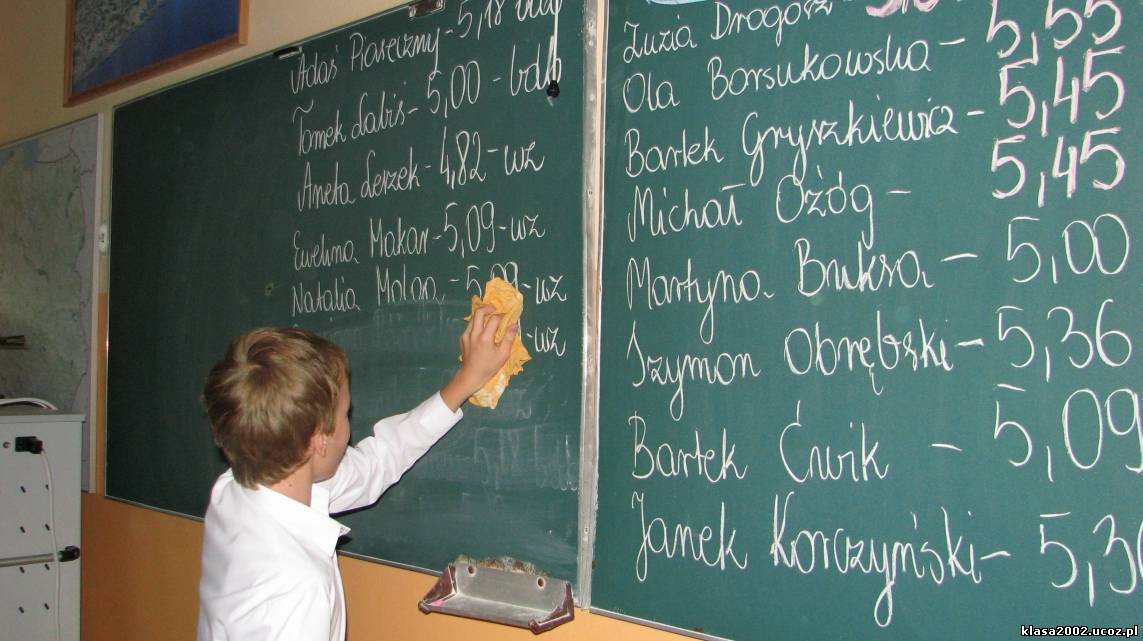 Adaś Piaseczny - 5,18
Tomek Labis - 5,00 - bdb
Aneta Leszek - 4,82 - wz
Ewelina Makar - 5,09 - wz
Natalia Malga - 5,09 - wz
- wz
Zuzia Drogosz -
5,55
Ola Borsukowska - 5,45
Bartek Gryszkiewicz - 5,45
Michał Ożóg - 5,00
Martyna Buksa - 5,36
Szymon Obrębski - 5,09
Bartek Ćwik -
Janek Korczyński -
klasa2002.ucoz.pl